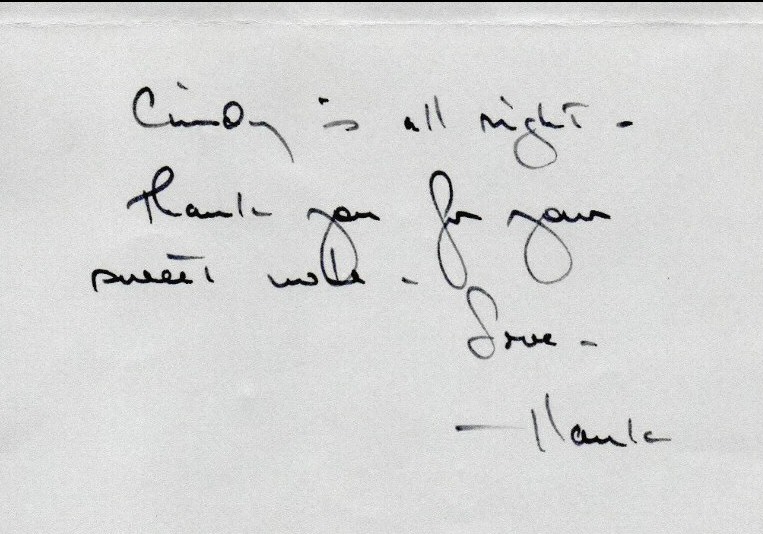 Cindy is all right -
Thank you for your
sweet note -
Love -
- Hank